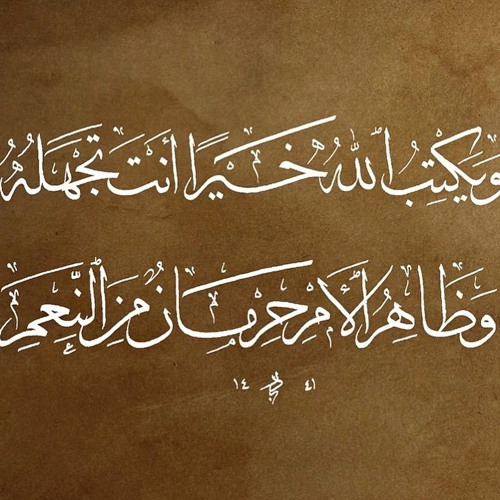 ويكتب الله خيرًا أنت تجهله
وظاهر الأمر حرمان من النعم
١٤ ٤١